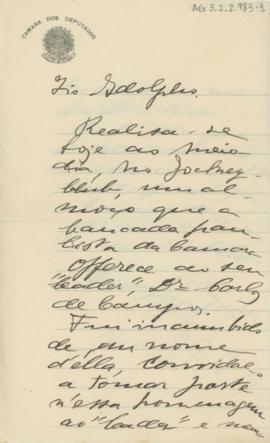 AG 3.2.2.783-1
CAMARA DOS DEPUTADOS
Tio Adolpho.
Realisa-se
hoje ao meio
dia, no Jockey-
Club, um al-
moço que a
bancada pau-
lista da Camara
offerece ao seu
"leader", Dr. Carlos
de Campos.
Fui incumbido
de em nome
d'ella, convidal-o
a tomar parte
n'essa homenagem
ao "leader" e